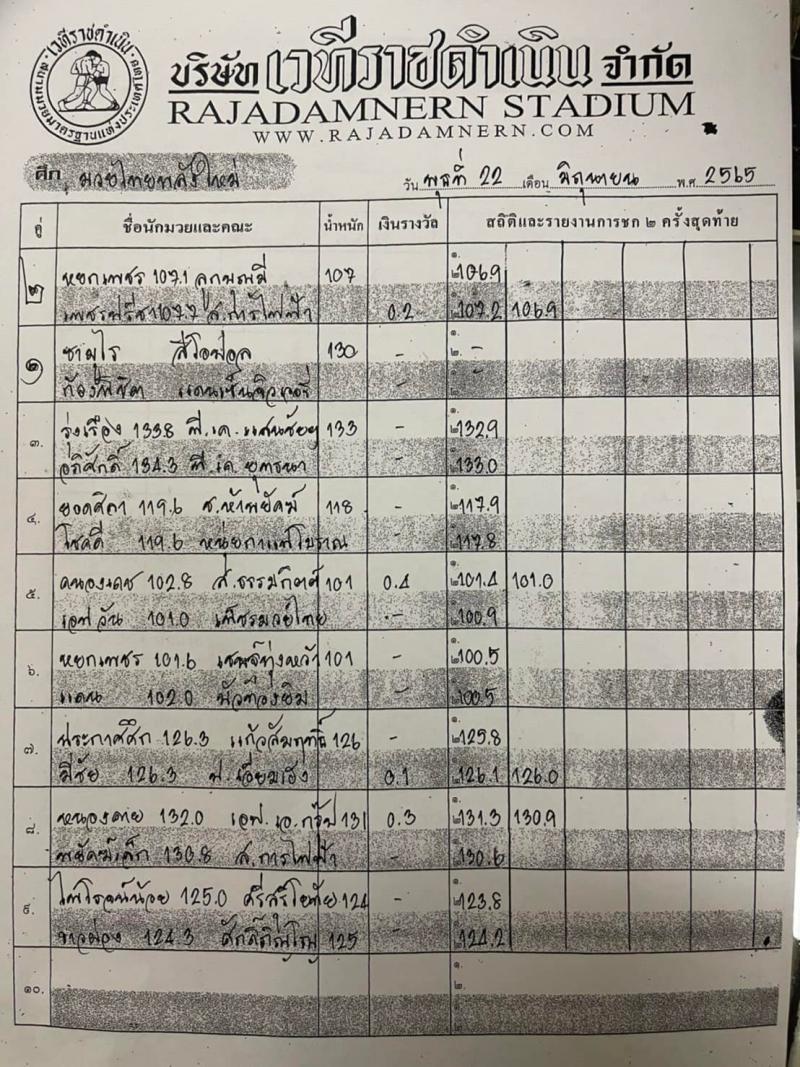 เวทีราชดำเนิน
สถานมวยมาตรฐานแห่งประเทศไทย
บริษัท เวทีราชดำเนิน จำกัด
RAJADAMNERN STADIUM
WWW.RAJADAMNERN.COM
ศึก มวยไทยพลังใหม่ วัน พุธที่ 22 เดือน มิถุนายน พ.ศ. 2565
คู่ ชื่อนักมวยและคณะ น้ำหนัก เงินรางวัล สถิติและรายงานการชก ๒ ครั้งสุดท้าย
๒ หยกเพชร 107.1 ลูกมณมี 107 ๑. 106.9
เพชรปรีชา 107.7 ส.การไฟฟ้า 0.2 ๒. 107.2 106.9
๑ ซามูไร สีโอปอล 130 - ๑. ๒. -
ก้องพิชิต แดนเซ็นจิวเวอรี่ -
๓. รุ่งเรือง 133.8 พี.เค.แสนชัยฯ 133 - ๑. ๒. 132.9
อภิศักดิ์ 134.3 พี.เค. ยุทธนา - 133.0
๔. ยอดศิลา 119.6 ช.ห้าพยัคฆ์ 118 - ๑. ๒. 117.9
โชคดี 119.6 หน่อยกาแฟโบราณ - 117.8
๕. คนองเดช 102.8 ส.ธรรมกิตติ์ 101 0.4 ๑. ๒. 101.4 101.0
เอฟวัน 101.0 เพ็ชรมวยไทย - 100.9
๖. หยกเพชร 101.6 ทุ่งหว้า 101 - ๑. ๒. 100.5
แดน 102.0 บัวทองยิม - 100.5
๗. ประกาศศึก 126.3 แก้วสัมฤทธิ์ 126 - ๑. ๒. 125.8
มีชัย 126.3 ป.เอี่ยมเฮง 0.1 126.1 126.0
๘. หนองคาย 132.0 เอฟ.เอ.กรุ๊ป 131 0.3 ๑. ๒. 131.3 130.9
พยัคฆ์เล็ก 130.8 ส.การไฟฟ้า - 130.6
๙. ไพโรจน์น้อย 125.0 ศรีสุริโยทัย 124 - ๑. ๒. 123.8
ขาวผ่อง 124.3 125 - 124.2
๑๐. ๑.
๒.